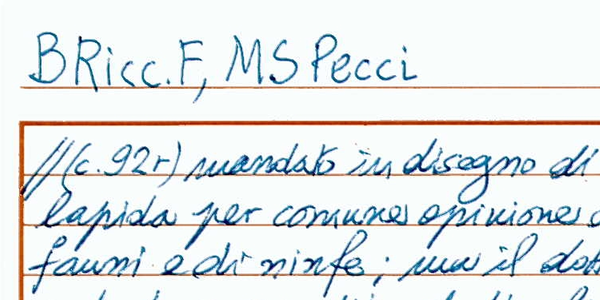 BRicc.F, MS Pecci
//(c.92r) mandato in disegno di
lapida per comune opinione
fauni e di ninfe; ma il dot